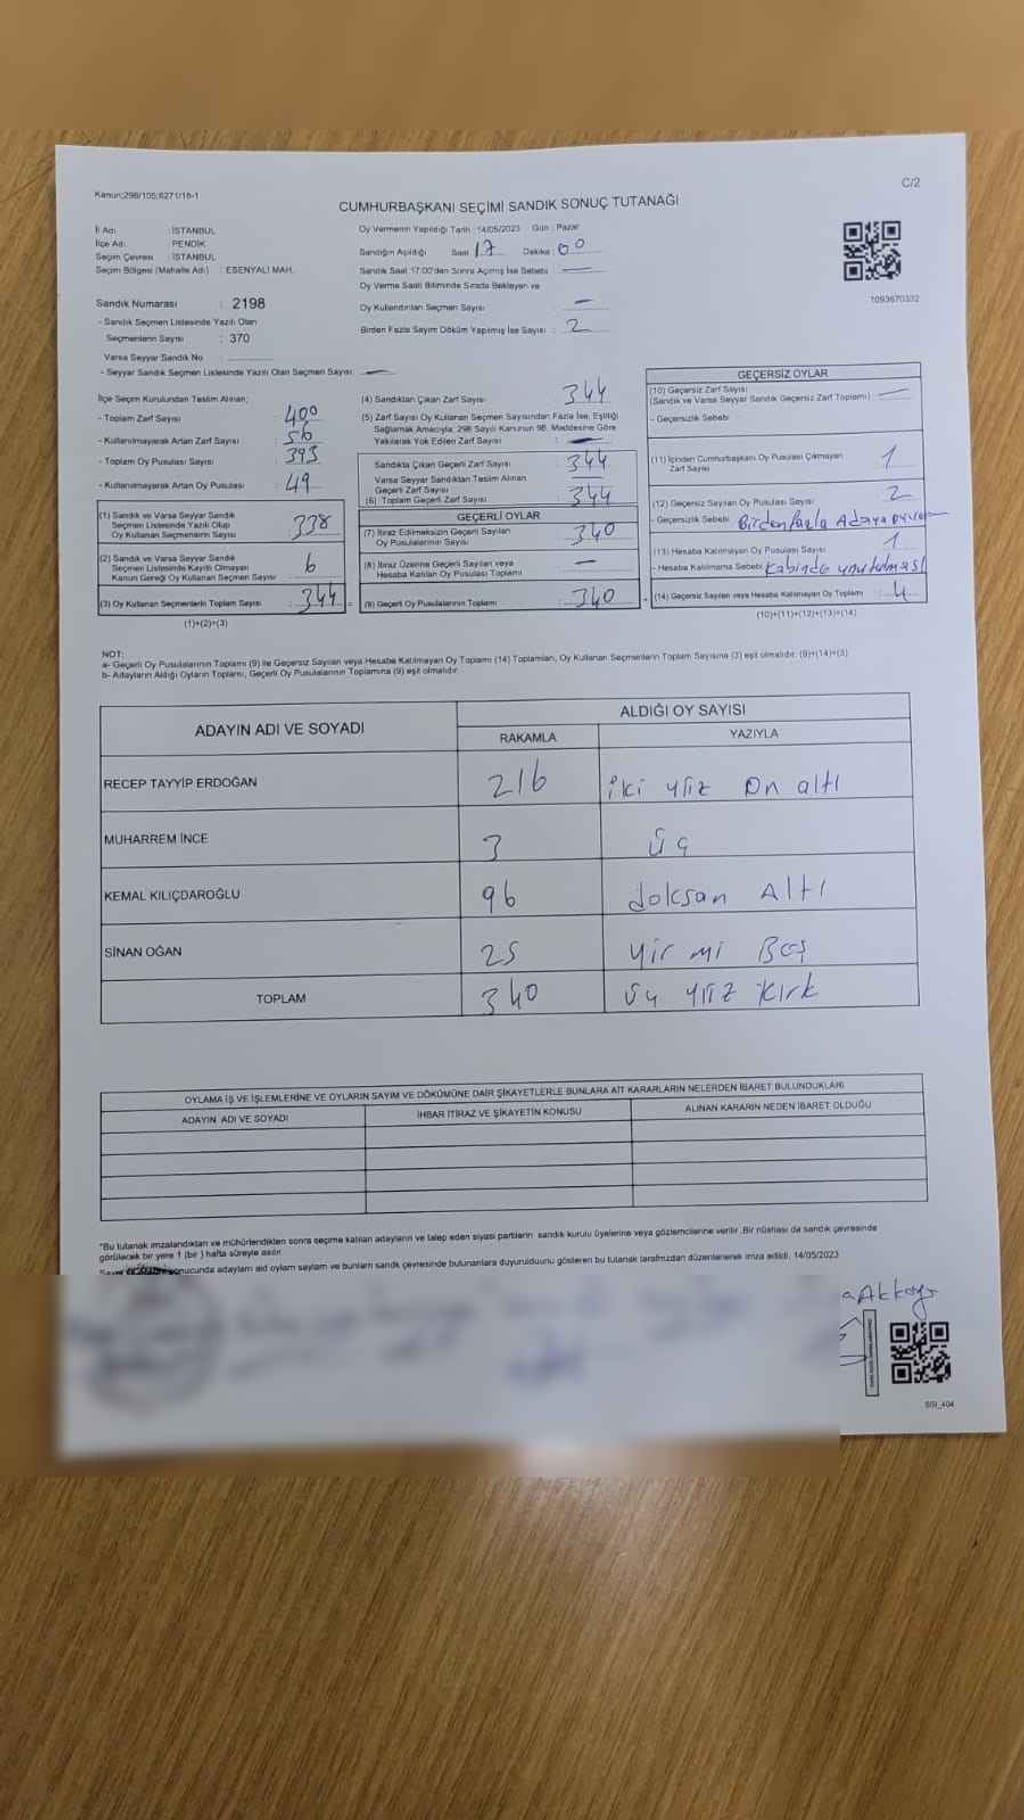 Kanun:298/105;6271/16-1
C/2
CUMHURBAŞKANI SEÇİMİ SANDIK SONUÇ TUTANAĞI
İl Adı : İSTANBUL
İlçe Adı : PENDİK
Seçim Çevresi : İSTANBUL
Seçim Bölgesi (Mahalle Adı) : ESENYALI MAH.
Sandık Numarası : 2198
- Sandık Seçmen Listesinde Yazılı Olan
Seçmenlerin Sayısı : 370
Varsa Seyyar Sandık No :
- Seyyar Sandık Seçmen Listesinde Yazılı Olan Seçmen Sayısı : —
Oy Vermenin Yapıldığı Tarih : 14/05/2023 Gün : Pazar
Sandığın Açıldığı Saat : 17 Dakika : 00
Sandık Saat 17:00'dan Sonra Açılmış İse Sebebi : —
Oy Verme Saati Bitiminde Sırada Bekleyen ve
Oy Kullandırılan Seçmen Sayısı : —
Birden Fazla Sayım Döküm Yapılmış İse Sayısı : 2
1093670332
İlçe Seçim Kurulundan Teslim Alınan;
- Toplam Zarf Sayısı : 400
- Kullanılmayarak Artan Zarf Sayısı : 56
- Toplam Oy Pusulası Sayısı : 393
- Kullanılmayarak Artan Oy Pusulası : 49
(1) Sandık ve Varsa Seyyar Sandık
Seçmen Listesinde Yazılı Olup
Oy Kullanan Seçmenlerin Sayısı : 338
(2) Sandık ve Varsa Seyyar Sandık
Seçmen Listesinde Kayıtlı Olmayan
Kanun Gereği Oy Kullanan Seçmen Sayısı : 6
(3) Oy Kullanan Seçmenlerin Toplam Sayısı : 344 =
(1)+(2)=(3)
(4) Sandıktan Çıkan Zarf Sayısı : 344
(5) Zarf Sayısı Oy Kullanan Seçmen Sayısından Fazla İse, Eşitliği
Sağlamak Amacıyla; 298 Sayılı Kanunun 98. Maddesine Göre
Yakılarak Yok Edilen Zarf Sayısı : —
Sandıkta Çıkan Geçerli Zarf Sayısı : 344
Varsa Seyyar Sandıktan Teslim Alınan
Geçerli Zarf Sayısı : —
(6) Toplam Geçerli Zarf Sayısı : 344
GEÇERLİ OYLAR
(7) İtiraz Edilmeksizin Geçerli Sayılan
Oy Pusulalarının Sayısı : 340
(8) İtiraz Üzerine Geçerli Sayılan veya
Hesaba Katılan Oy Pusulası Toplamı : —
(9) Geçerli Oy Pusulalarının Toplamı : 340
GEÇERSİZ OYLAR
(10) Geçersiz Zarf Sayısı
(Sandık ve Varsa Seyyar Sandık Geçersiz Zarf Toplamı) : —
- Geçersizlik Sebebi :
(11) İçinden Cumhurbaşkanı Oy Pusulası Çıkmayan
Zarf Sayısı : 1
(12) Geçersiz Sayılan Oy Pusulası Sayısı : 2
- Geçersizlik Sebebi : Birden fazla Adaya
(13) Hesaba Katılmayan Oy Pusulası Sayısı : 1
- Hesaba Katılmama Sebebi : Kabinde unutulması
(14) Geçersiz Sayılan veya Hesaba Katılmayan Oy Toplamı : 4
(10)+(11)+(12)+(13)=(14)
NOT:
a- Geçerli Oy Pusulalarının Toplamı (9) ile Geçersiz Sayılan veya Hesaba Katılmayan Oy Toplamı (14) Toplamları, Oy Kullanan Seçmenlerin Toplam Sayısına (3) eşit olmalıdır. (9)+(14)=(3)
b- Adayların Aldığı Oyların Toplamı, Geçerli Oy Pusulalarının Toplamına (9) eşit olmalıdır.
ADAYIN ADI VE SOYADI
ALDIĞI OY SAYISI
RAKAMLA YAZIYLA
RECEP TAYYİP ERDOĞAN 216 iki yüz On altı
MUHARREM İNCE 3 üç
KEMAL KILIÇDAROĞLU 96 doksan Altı
SİNAN OĞAN 25 yirmi Beş
TOPLAM 340 üç yüz kırk
OYLAMA İŞ VE İŞLEMLERİNE VE OYLARIN SAYIM VE DÖKÜMÜNE DAİR ŞİKAYETLERLE BUNLARA AİT KARARLARIN NELERDEN İBARET BULUNDUKLARI
ADAYIN ADI VE SOYADI İHBAR İTİRAZ VE ŞİKAYETİN KONUSU ALINAN KARARIN NEDEN İBARET OLDUĞU
"Bu tutanak imzalandıktan ve mühürlendikten sonra seçime katılan adayların ve talep eden siyasi partilerin sandık kurulu üyelerine veya gözlemcilerine verilir. Bir nüshası da sandık çevresinde
görülecek bir yere 1 (bir) hafta süreyle asılır.
sonucunda adayların aldığı oyların sayılarını ve bunların sandık çevresinde bulunanlara duyurulduğunu gösteren bu tutanak tarafımızdan düzenlenerek imza edildi. 14/05/2023